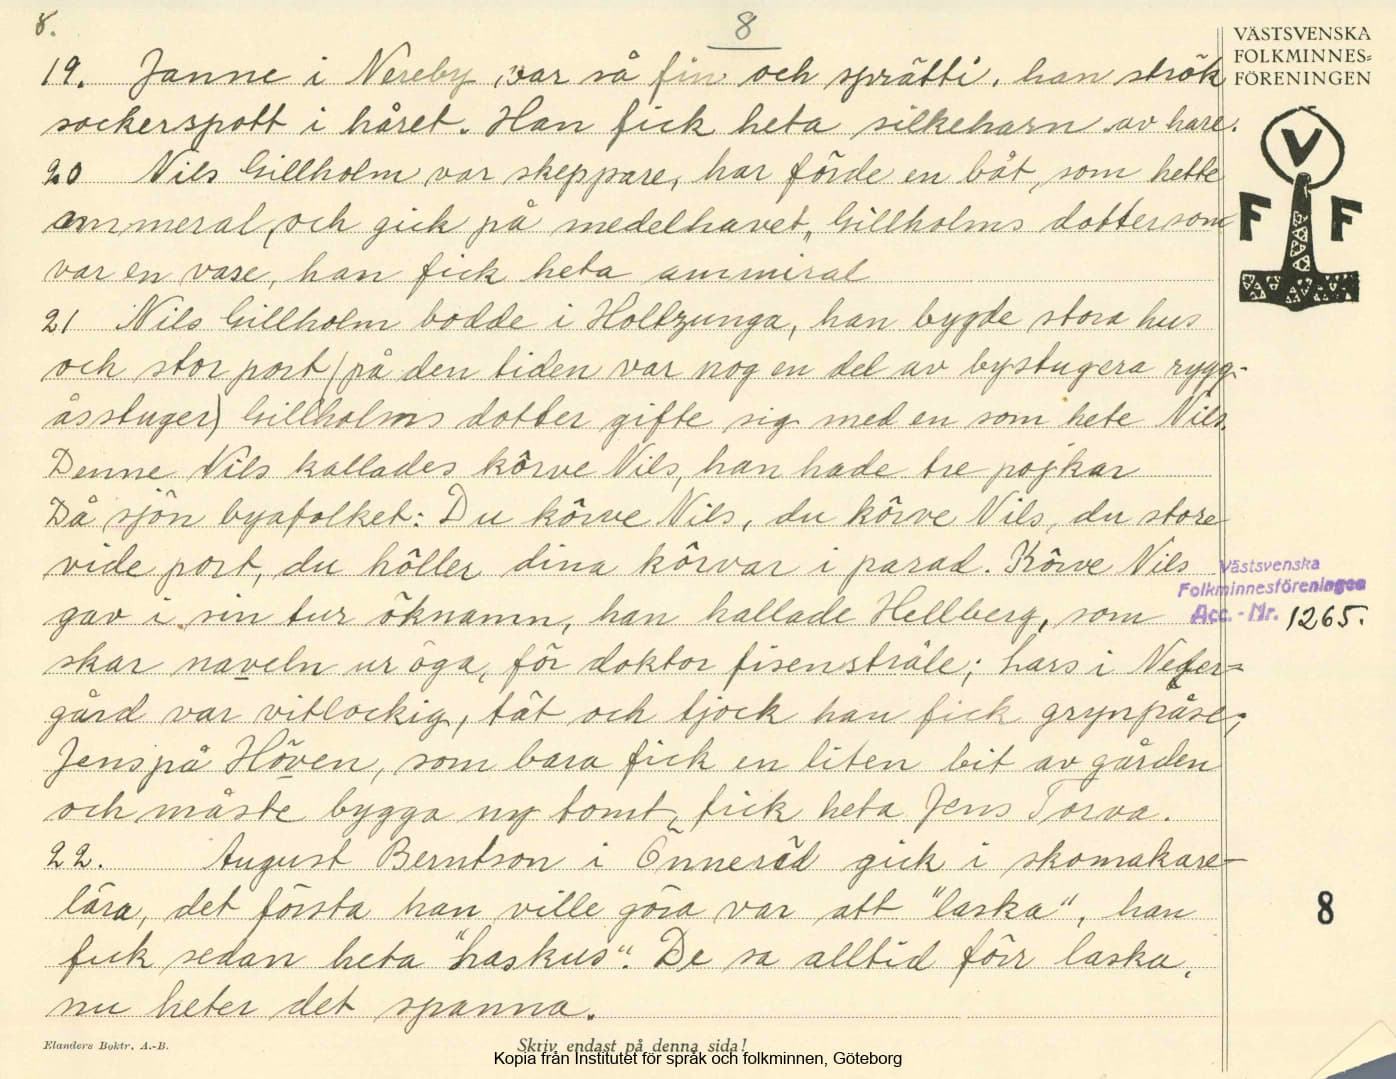 8.
8
VÄSTSVENSKA
FOLKMINNES=
FÖRENINGEN
V
F F
19. Janne i Nereby, var så fin och sprätti, han strök
sockerspott i håret. Han fick heta silkeharn av hare.
20 Nils Gillholm var skeppare, har förde en båt, som hette
ammeral, och gick på medelhavet, Gillholms dotterson
var en vase, han fick heta ammiral
21 Nils Gillholm bodde i Holtzunga, han bygde stora hus
och stor port (på den tiden var nog en del av bystugera rygg-
åsstuger) Gillholms dotter gifte sig med en som hete Nils.
Denne Nils kallades körve Nils, han hade tre pojkar
Då sjön byafolket: Du körve Nils, du körve Nils, du store
vide port, du höller dina körvar i parad. Körve Nils
gav i sin tur öknamn, han kallade Hellberg, som
skar naveln ur öga, för doktor fisenstråle; Lars i Neder=
gård var vitlockig, tät och tjock han fick grynpåse;
Jens på Höven, som bara fick en liten bit av gården
och måste bygga ny tomt, fick heta Jens Torva.
22. August Berntson i Önneröd gick i skomakare-
lära, det första han ville göra var att "laska", han
fick sedan heta "Laskus". De sa alltid förr laska,
nu heter det spanna.
Västsvenska
Folkminnesföreningen
Acc. - Nr. 1265.
8
Elanders Boktr. A.-B.
Skriv endast på denna sida!
Kopia från Institutet för språk och folkminnen, Göteborg